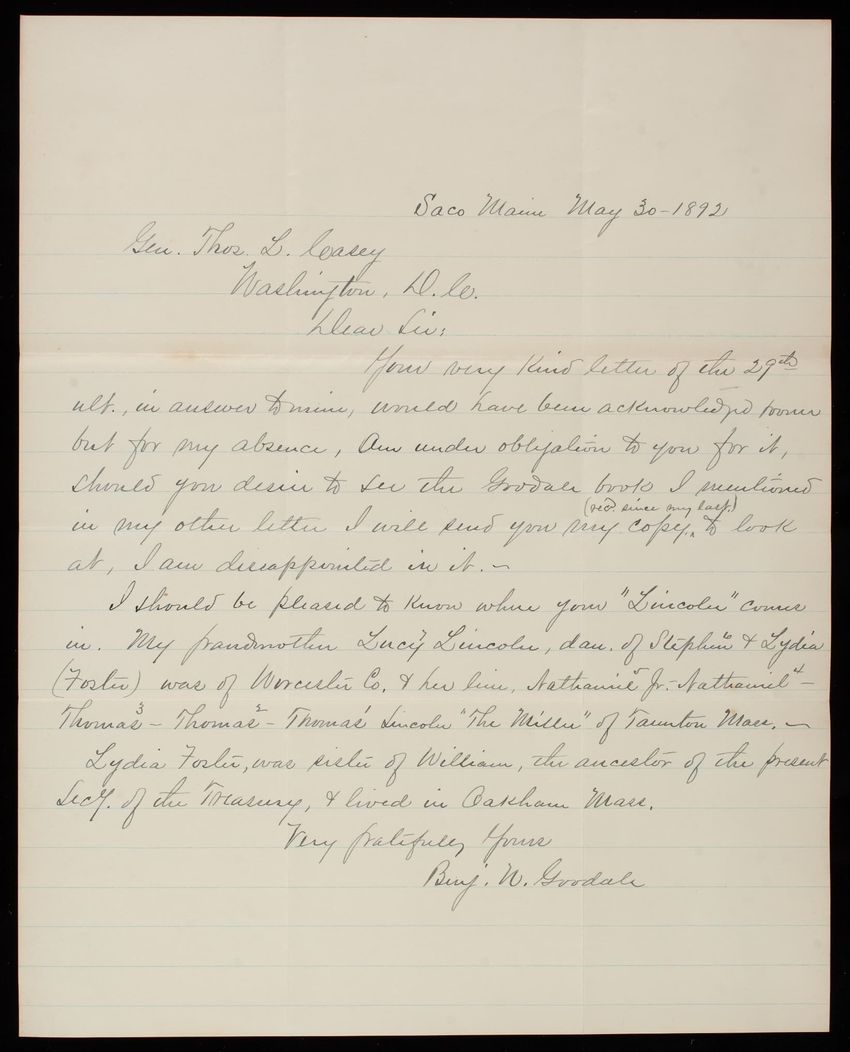 Saco Maine May 30-1892
Gen. Thos. L. Casey
Washington, D.C.
Dear Sir:
Your very kind letter of the 29th
ult., in answer to mine, would have been acknowledged sooner
but for my absence, Am under obligation to you for it,
should you desire to see the Goodale book I mentioned
(recd. since my last.)
in my other letter I will send you my copy. ^ to look
at, I am disappointed in it. ~
I should be pleased to know where your "Lincoln" comes
in. My grandmother Lucy 7 Lincoln, dau. of Stephen 6 & Lydia
(Foster) was of Worcester Co. & her line, Nathaniel 5 Jr. - Nathaniel 4 -
Thomas 3 - Thomas 2 - Thomas 1 Lincoln "The Miller" of Taunton Mass. ~
Lydia Foster, was sister of William, the ancestor of the present
Secy. of the Treasury, & lived in Oakham Mass.
Very gratefully Yours
Benj. N. Goodale